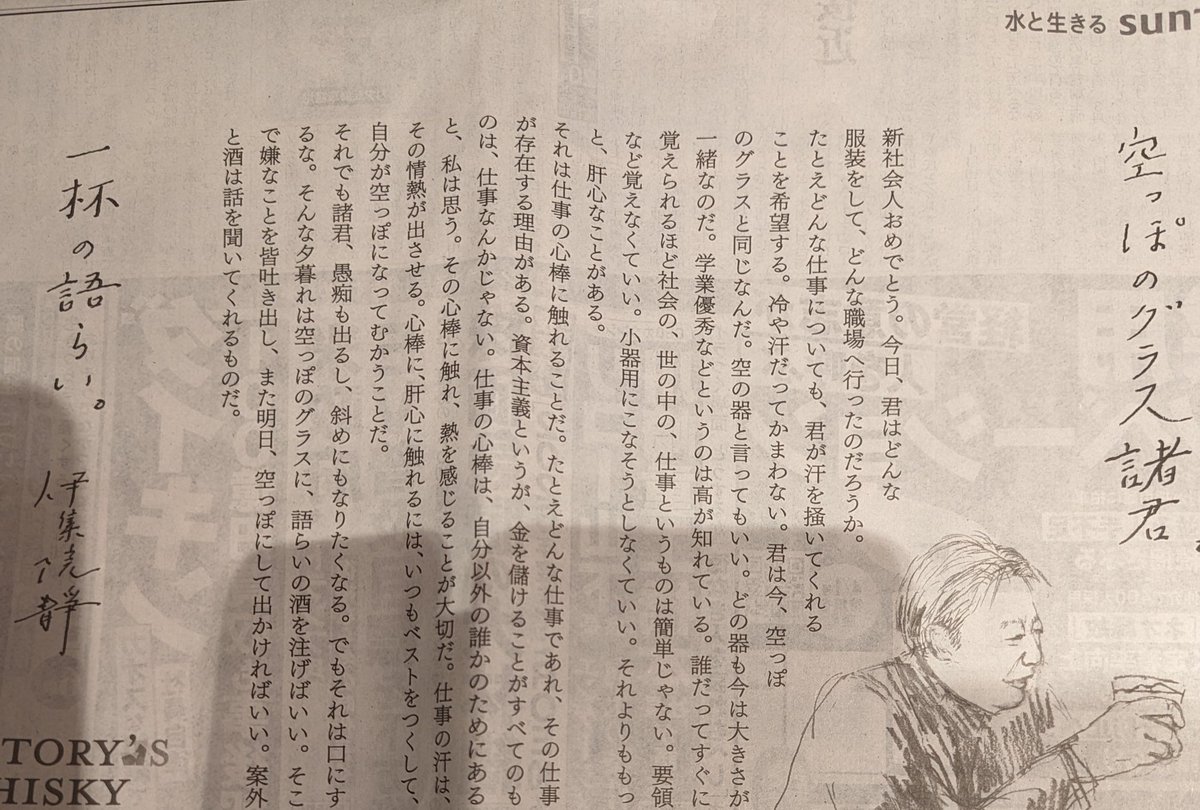 水と生きる SUNT
空っぽのグラス諸君。
新社会人おめでとう。今日、君はどんな
服装をして、どんな職場へ行ったのだろうか。
たとえどんな仕事についても、君が汗を掻いてくれる
ことを希望する。冷や汗だってかまわない。君は今、空っぽ
のグラスと同じなんだ。空の器と言ってもいい。どの器も今は大きさが
一緒なのだ。学業優秀などというのは高が知れている。誰だってすぐに
覚えられるほど社会の、世の中の、仕事というものは簡単じゃない。要領
など覚えなくていい。小器用にこなそうとしなくていい。それよりももっ
と、肝心なことがある。
それは仕事の心棒に触れることだ。たとえどんな仕事であれ、その仕事
が存在する理由がある。資本主義というが、金を儲けることがすべてのも
のは、仕事なんかじゃない。仕事の心棒は、自分以外の誰かのためにある
と、私は思う。その心棒に触れ、熱を感じることが大切だ。仕事の汗は、
その情熱が出させる。心棒に、肝心に触れるには、いつもベストをつくして、
自分が空っぽになってむかうことだ。
それでも諸君、愚痴も出るし、斜めにもなりたくなる。でもそれは口にす
るな。そんな夕暮れは空っぽのグラスに、語らいの酒を注げばいい。そこ
で嫌なことを皆吐き出し、また明日、空っぽにして出かければいい。案外
と酒は話を聞いてくれるものだ。
一杯の語らい。
伊集院静
TORY'S
HISKY